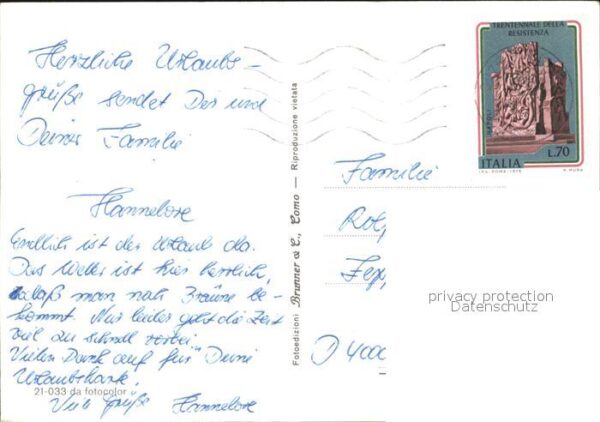 Herzliche Urlaubs-
grüße sendet Dir und
Deiner Familie
Hannelore
Endlich ist der Urlaub da.
Das Wetter ist hier herrlich,
sodaß man nah Bräune be-
kommt. Nur leider geht die Zeit
viel zu schnell vorbei.
Vielen Dank auf für Deine
Urlaubskarte.
Viele Grüße Hannelore
21-033 da fotocolor
Fotoedizioni Brunner & C., Como — Riproduzione vietata
TRENTENNALE DELLA
RESISTENZA
NAPOLI
L.70
ITALIA
I.P.S. ROMA 1975
Familie
Rol
Fey
D 4000
privacy protection
Datenschutz